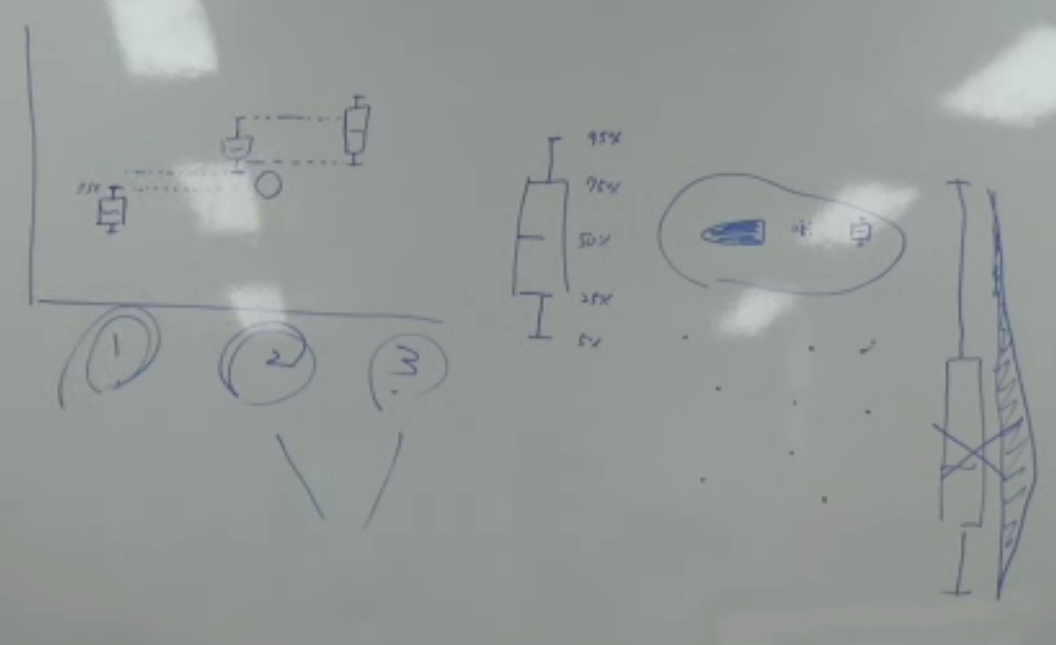 1
2
3
95%
75%
50%
25%
5%